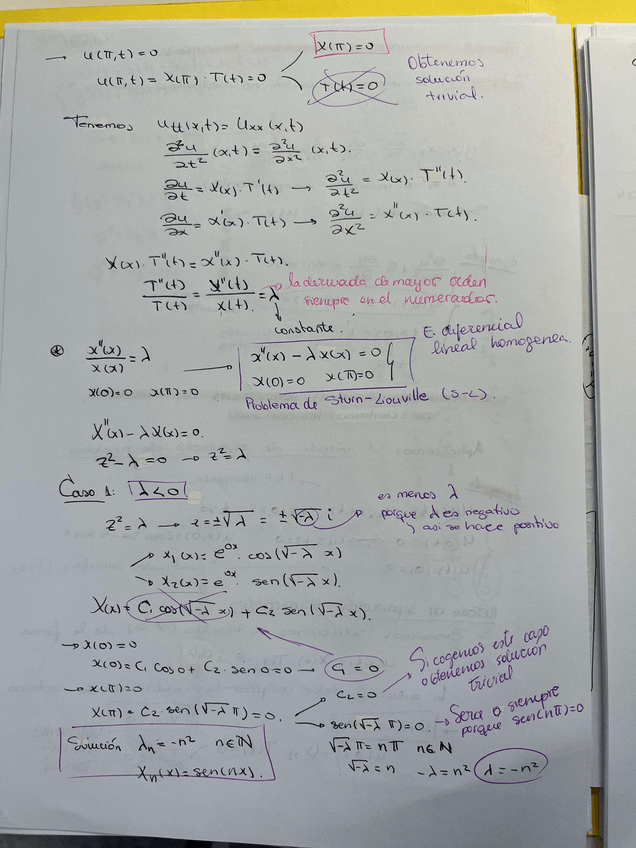 → u(π,t)=0
X(π)=0
u(π,t)= X(π)·T(t)=0
T(t)=0
Obtenemos
solución
trivial.
Tenemos utt(x,t)= uxx(x,t)
∂²u/∂t² (x,t) = ∂²u/∂x² (x,t).
∂u/∂t = X(x)·T'(t) → ∂²u/∂t² = X(x)·T''(t).
∂u/∂x = X'(x)·T(t) → ∂²u/∂x² = X''(x)·T(t).
X(x)·T''(t)=X''(x)·T(t).
T''(t)/T(t) = X''(x)/X(x) = λ → la derivada de mayor orden
siempre en el numerador.
constante.
E. diferencial
lineal homogenea.
⊛ X''(x)/X(x) = λ → X''(x) - λX(x) = 0
X(0)=0 X(π)=0 X(0)=0 X(π)=0
Problema de Sturn-Liouville (S-L).
X''(x) - λX(x)=0.
z²-λ=0 → z²=λ
Caso 1: λ<0
z²=λ → z=±√λ = ±√-λ i
es menos λ
porque λ es negativo
y asi se hace positivo
→ x₁(x)= e^0x · cos(√-λ x)
→ x₂(x)= e^0x · sen(√-λ x).
X(x)= C₁ cos(√-λ x) + C₂ sen(√-λ x).
→ X(0)=0
X(0)= C₁ cos 0 + C₂ · sen 0 = 0 → C₁ = 0
Si cogemos este caso
obtenemos solución
trivial
→ X(π)=0
C₂=0
X(π) = C₂ · sen(√-λ π) = 0.
sen(√-λ π)=0. → Sera 0 siempre
porque sen(nπ)=0
√-λ π = nπ n∈N
√-λ = n -λ = n² λ = -n²
Solución λn = -n² n∈N
Xn(x)= sen(nx).